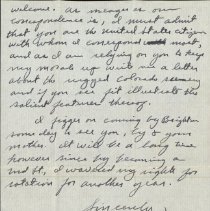 welcome. As meager as our
correspondence is, I must admit
that you are the United States citizen
with whom I correspond most,
and as I am relying on you to keep
my morale up write me a letter
about the rugged Colorado scenery
and if you see fit illustrate the
salient features thereof.
I figger on coming by Brighton
some day to see you, Ly & your
mother. It will be a long time
however since by becoming a
I waived my rights for
rotation for another year.
Sincerely